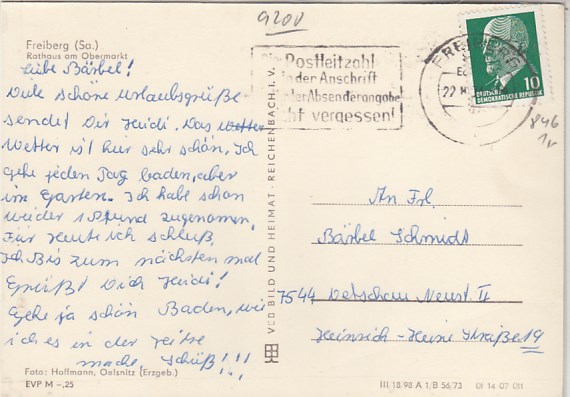 9200
Freiberg (Sa.)
Rathaus am Obermarkt
Liebe Bärbel!
Viele schöne Urlaubsgrüße
sendet Dir Heidi. Das Wetter
Wetter ist hir sehr schön. Ich
gehe jeden Tag baden, aber
im Garten. Ich habe schon
wieder 1 Pfund zugenommen.
Für Heute ich schluß.
Ich Bis zum nächsten mal
Grüßt Dich Heidi!
Gehe ja schön Baden, wie
ich es in der
mache, Schüß!!!
Foto: Hoffmann, Oelsnitz (Erzgeb.)
EVP M –,25
VEB BILD UND HEIMAT · REICHENBACH I. V.
Die Postleitzahl
in der Anschrift
und der Absenderangabe
nicht vergessen!
FREIBERG
22
10
DEUTSCHE
DEMOKRATISCHE REPUBLIK
846
1v
An Frl.
Bärbel Schmidt
7544 Vetschau Neust. II
Heinrich-Heine Straße 19
III 18/98 A 1/B 56/73 DI 14 07 011